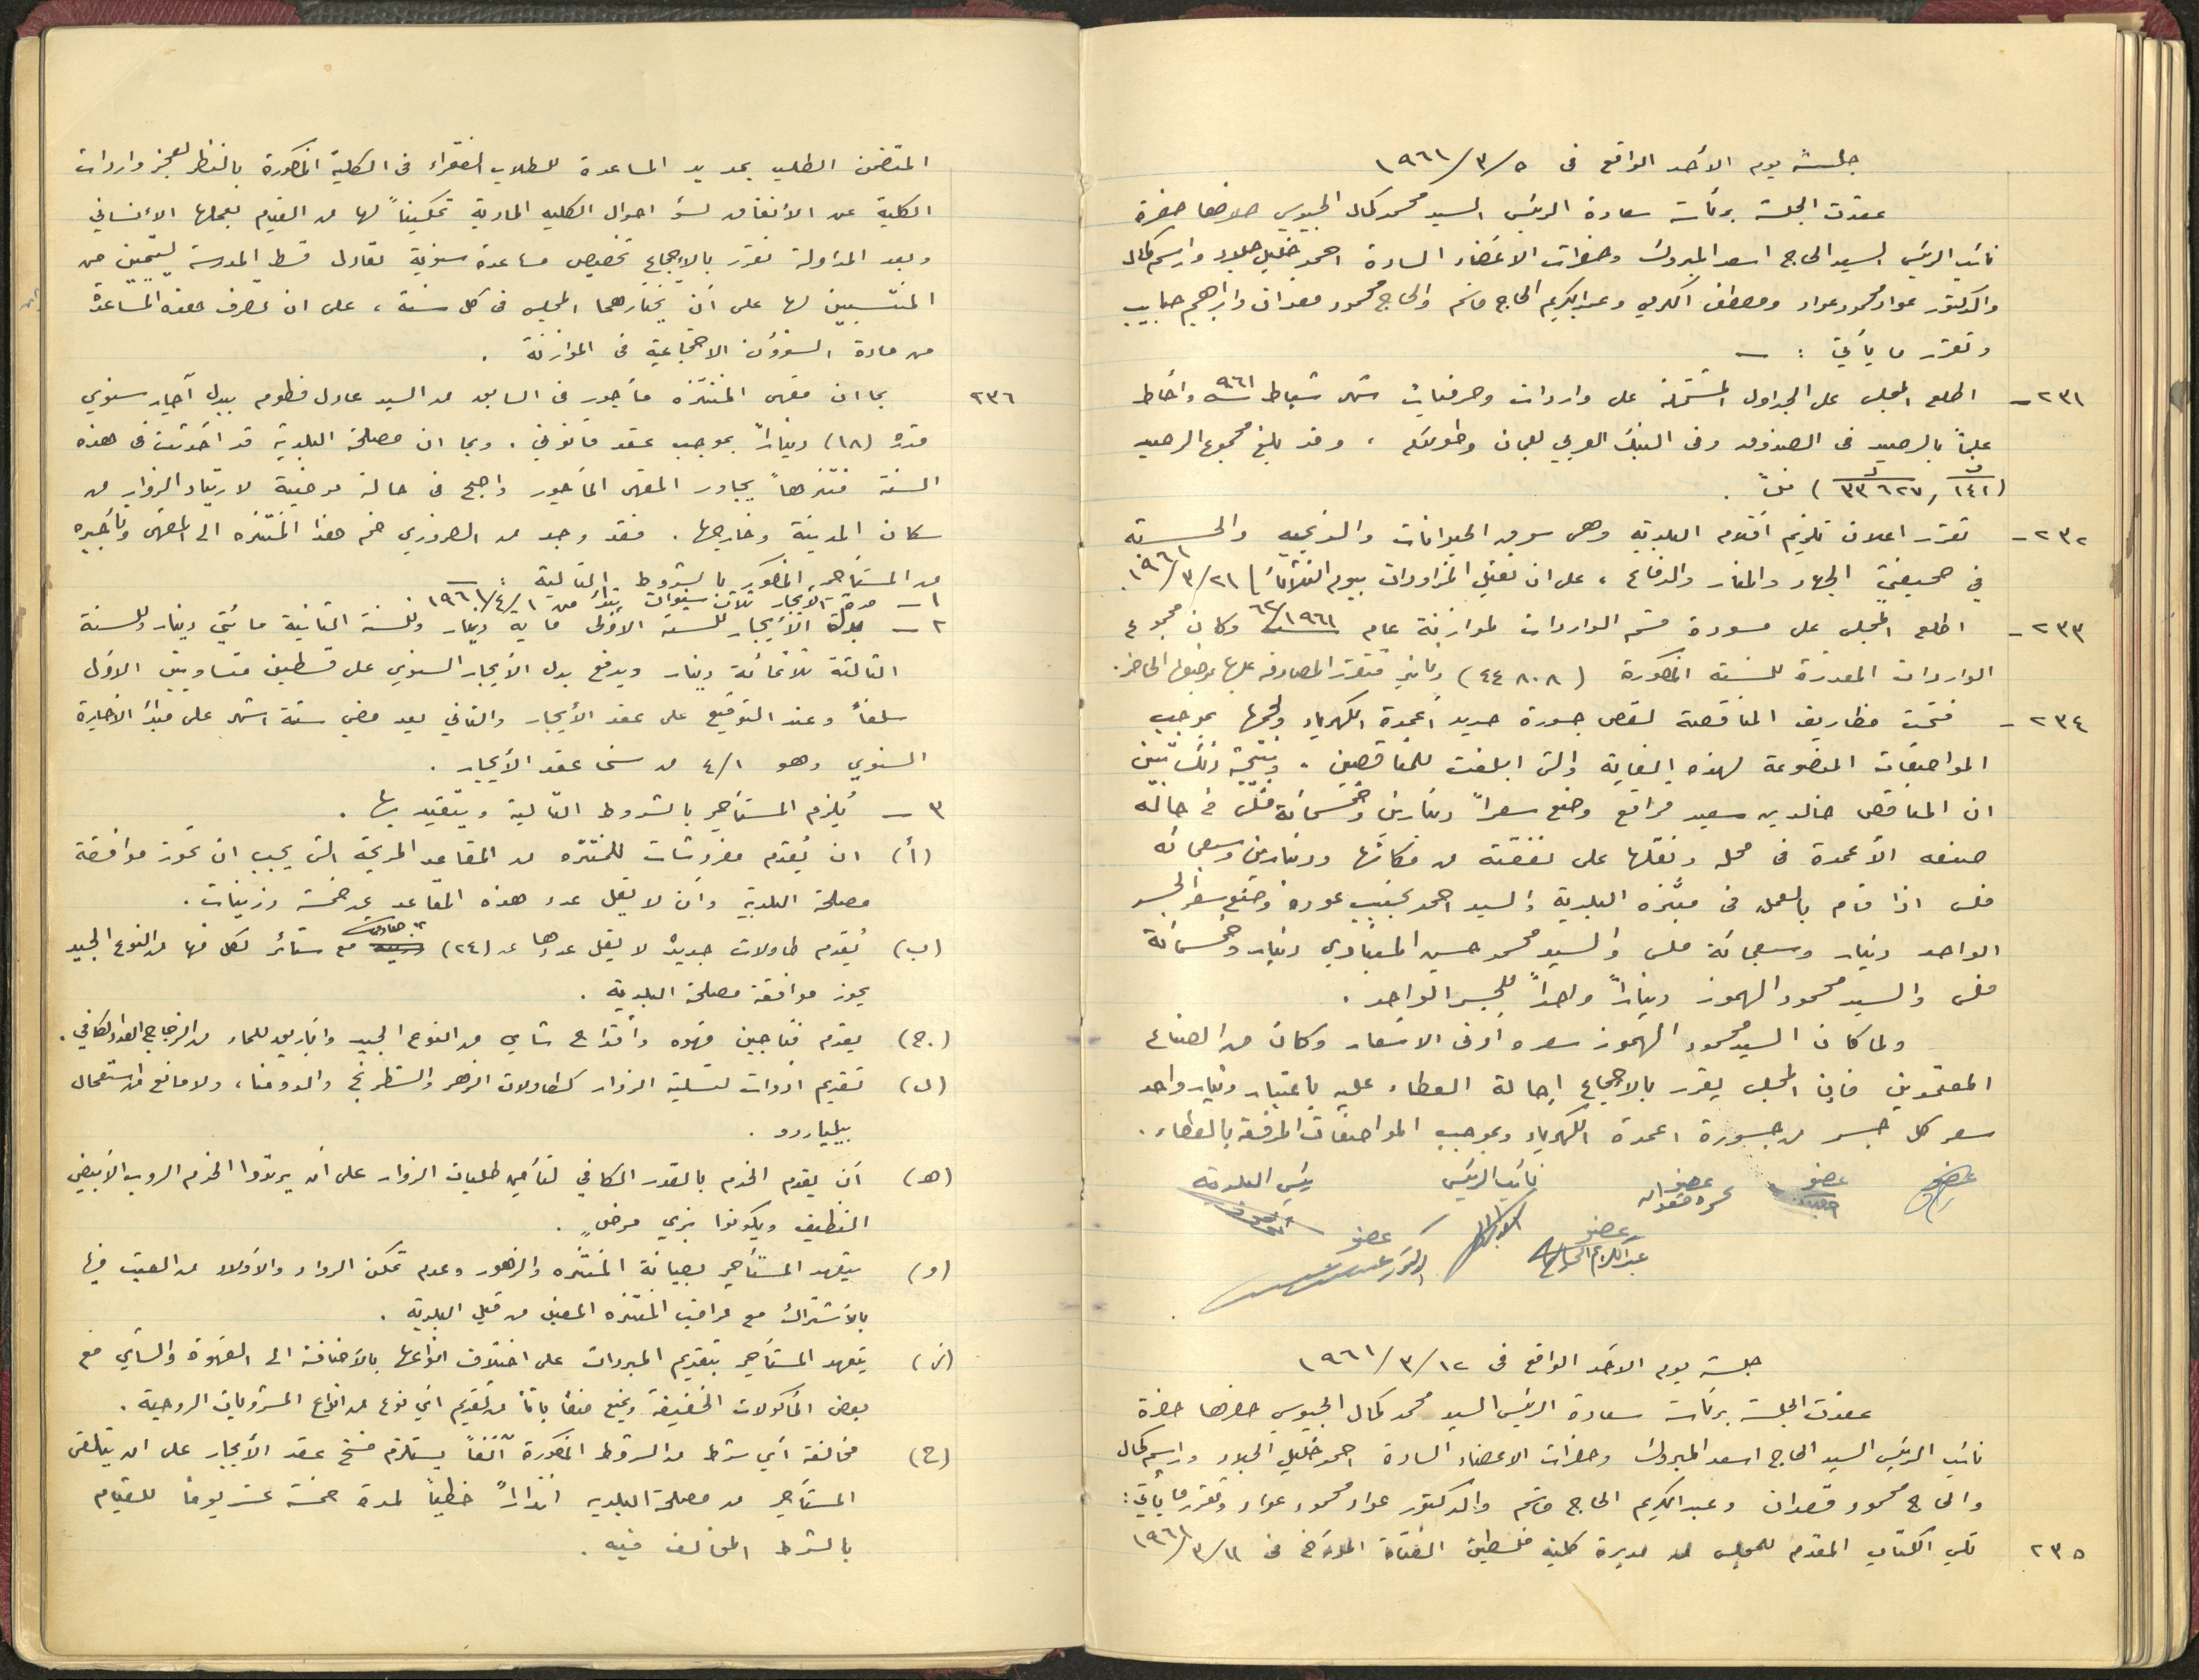 جلسة يوم الأحد الواقع في ١٩٦١/٣/٥
عقدت الجلسة برئاسة سعادة الرئيس السيد محمد كمال الجيوسي حضرها حضرة
نائب الرئيس السيد الحاج اسعد المبروك وحضرات الاعضاء السادة احمد خليل جلاد وراسم كمال
والدكتور عواد محمود عواد ومصطفى الكرمي وعبد الكريم الحاج قاسم والحاج محمود قعدان وابراهيم حبايب
وتقرر ما يأتي : ــ
٢٣١ ــ اطلع المجلس على الجداول المشتملة على واردات وصرفيات شهر شباط سنة ٩٦١ واحاط
علماً بالرصيد في الصندوق وفي البنك العربي لعمان وطولكرم ، وقد بلغ مجموع الرصيد
(٣٣٦٢٧,١٤١)
٢٣٢ ــ تقرر اعلان تلزيم اقلام البلدية وهي سوق الحيوانات والذبحية والحسبة
في صحيفتي الجهاد والمنار والدفاع ، على ان تعين المزاودات بيوم الثلاثاء ١٩٦١/٣/٢١.
٢٣٣ ــ اطلع المجلس على مسودة قسم الواردات لموازنة عام ٦٢/١٩٦١ وكان مجموع
الواردات المقدرة للسنة المذكورة (٤٤٨٠٨) دنانير فتقرر المصادقة عليها بوضعها الحاضر.
٢٣٤ ــ فتحت مظاريف المناقصة لقص جسورة حديد أعمدة الكهرباء ولحمها بموجب
المواصفات الموضوعة لهذه الغاية والتي ابلغت للمناقصين . ونتيجة ذلك تبين
ان المناقص خالد بن سعيد مرافع وضع سعراً دينارين وخمسمائة فلس في حالة
صنعه الأعمدة في محله ونقلها على نفقته من مكانها ودينارين وسبعمائة
فلس اذا قام بالعمل في متنزه البلدية والسيد احمد نجيب عوده وضع سعر الجسر
الواحد دينار وسبعمائة فلس والسيد محمد حسين المغبادي دينار وخمسمائة
فلس والسيد محمود الهموز ديناراً واحداً للجسر الواحد .
ولما كان السيد محمود الهموز سعره أدنى الاسعار وكان من الصناع
المعتمدين فإن المجلس يقرر بالاجماع إحالة العطاء عليه باعتبار دينار واحد
سعر كل جسر من جسورة اعمدة الكهرباء وبموجب المواصفات المرفقة بالعطاء .
عضو عضو عضو نائب الرئيس رئيس البلدية
عضو عضو
عبد الكريم الحاج
جلسة يوم الاحد الواقع في ١٩٦١/٣/١٢
عقدت الجلسة برئاسة سعادة الرئيس السيد محمد كمال الجيوسي حضرها حضرة
نائب الرئيس السيد الحاج اسعد المبروك وحضرات الاعضاء السادة احمد خليل الجلاد وراسم كمال
والحاج محمود قعدان وعبد الكريم الحاج قاسم والدكتور عواد محمود عواد وتقرر ما يأتي :
٢٣٥ تلي الكتاب المقدم للمجلس من مديرة كلية فلسطين الفتاة المؤرخ في ١٩٦١/٣/١١
المتضمن الطلب بمد يد المساعدة للطلاب الفقراء في الكلية المذكورة بالنظر لعجز واردات
الكلية عن الأنفاق لسوء احوال الكليه المادية تمكيناً لها من القيام بعملها الانساني
وبعد المداولة تقرر بالاجماع تخصيص مساعدة سنوية تعادل قسط المدرسة ليتيمين من
المنتسبين لها على أن يختارهما المجلس في كل سنة ، على ان تصرف هذه المساعدة
من مادة الشؤون الاجتماعية في الموازنة .
٢٣٦ بما ان مقهى المنتزه مأجور في السابق من السيد عادل فطوم ببدل آجار سنوي
قدره (١٨) ديناراً بموجب عقد قانوني . وبما ان مصلحة البلدية قد احدثت في هذه
السنة منتزهاً يجاور المقهى المأجور واصبح في حالة مرضية لارتياد الزوار من
سكان المدينة وخارجها . فقد وجد من الضروري ضم هذا المنتزه الى المقهى وتأجيره
من المستأجر المذكور بالشروط التالية : ــ
١ ــ مدة الأيجار ثلاث سنوات تبدأ من ١٩٦١/٤/١.
٢ ــ بدل الأيجار للسنة الأولى مايه دينار وللسنة الثانية مائتي دينار وللسنة
الثالثة ثلاثمائة دينار ويدفع بدل الأيجار السنوي على قسطين متساويين الاول
سلفاً وعند التوقيع على عقد الأيجار والثاني بعد مضي ستة اشهر على مبدأ الاجارة
السنوي وهو ٤/١ من سني عقد الأيجار .
٣ ــ يُلزم المستأجر بالشروط التالية ويتقيد بها .
(أ) ان يُقدم مفروشات للمنتزه من المقاعد المريحة التي يجب ان تحوز موافقة
مصلحة البلدية وأن لا يقل عدد هذه المقاعد عن خمسة دزينات .
(ب) يُقدم طاولات جديدة لا يقل عددها عن (٢٤) مع ستائر لكل منها من النوع الجيد
يحوز موافقة مصلحة البلدية .
(ج) يقدم فناجين قهوه وأقداح شاي من النوع الجيد واباريق للماء من الزجاج العدد الكافي .
(د) تقديم ادوات لتسلية الزوار كطاولات الزهر والشطرنج والدومنا ، ولا مانع من استعمال
بيلياردو .
(هـ) أن يقدم الخدم بالقدر الكافي لتأمين طلبات الزوار على أن يرتدوا الخدم الروب الأبيض
النظيف ويكونوا بزي مرضٍ .
(و) يتعهد المستأجر بصيانة المنتزه والزهور وعدم تمكن الرواد والأولاد من العبث فيها
بالأشتراك مع مراقب المنتزه المعين من قبل البلدية .
(ز) يتعهد المستأجر بتقديم المبردات على اختلاف انواعها بالأضافة الى القهوة والشاي مع
بعض المأكولات الخفيفة ويمنع منعاً باتاً من تقديم أي نوع من انواع المشروبات الروحية .
(ح) مخالفة أي شرط من الشروط المذكورة آنفاً يستلزم فسخ عقد الأيجار على ان يتلقى
المستأجر من مصلحة البلديه انذاراً خطياً لمدة خمسة عشر يوماً للقيام
بالشرط المخالف فيه .